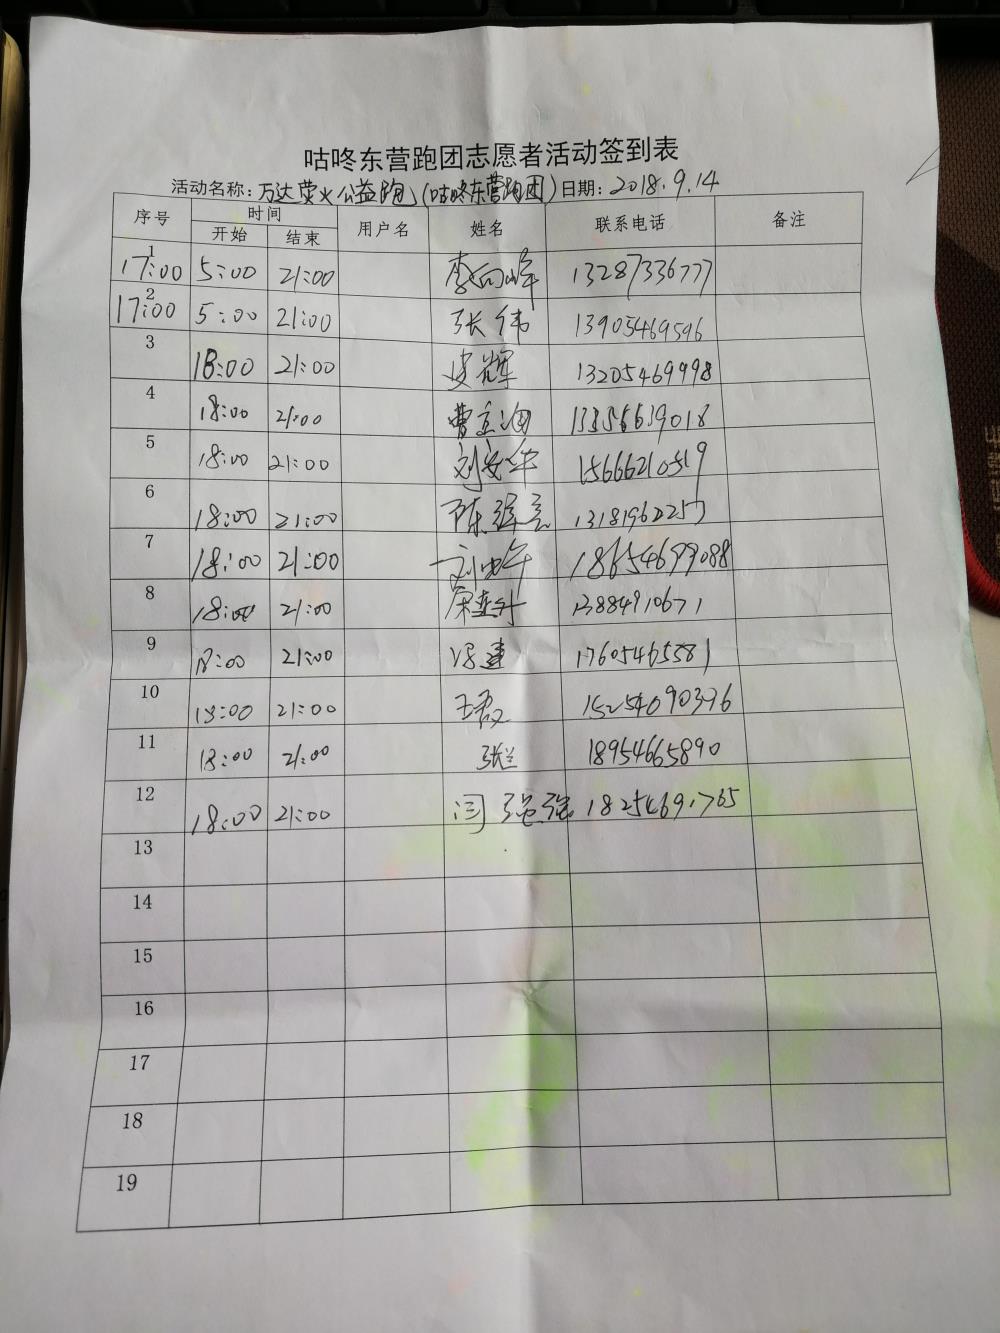 咕咚东营跑团志愿者活动签到表
活动名称：万达荧火公益跑（咕咚东营跑团）日期：2018.9.14
序号 时间 用户名 姓名 联系电话 备注
开始 结束
1 17:00 5:00 21:00 李向峰 13287336777
2 17:00 5:00 21:00 张伟 13905469596
3 18:00 21:00 皮辉 13205469998
4 18:00 21:00 曹立润 13356639018
5 18:00 21:00 刘安华 15666210519
6 18:00 21:00 陈 13181962257
7 18:00 21:00 刘 18654699088
8 18:00 21:00 13884910671
9 18:00 21:00 冯建 17605465581
10 18:00 21:00 王磊 15254090376
11 18:00 21:00 张兰 18954665890
12 18:00 21:00 闫强强 18254691765
13
14
15
16
17
18
19